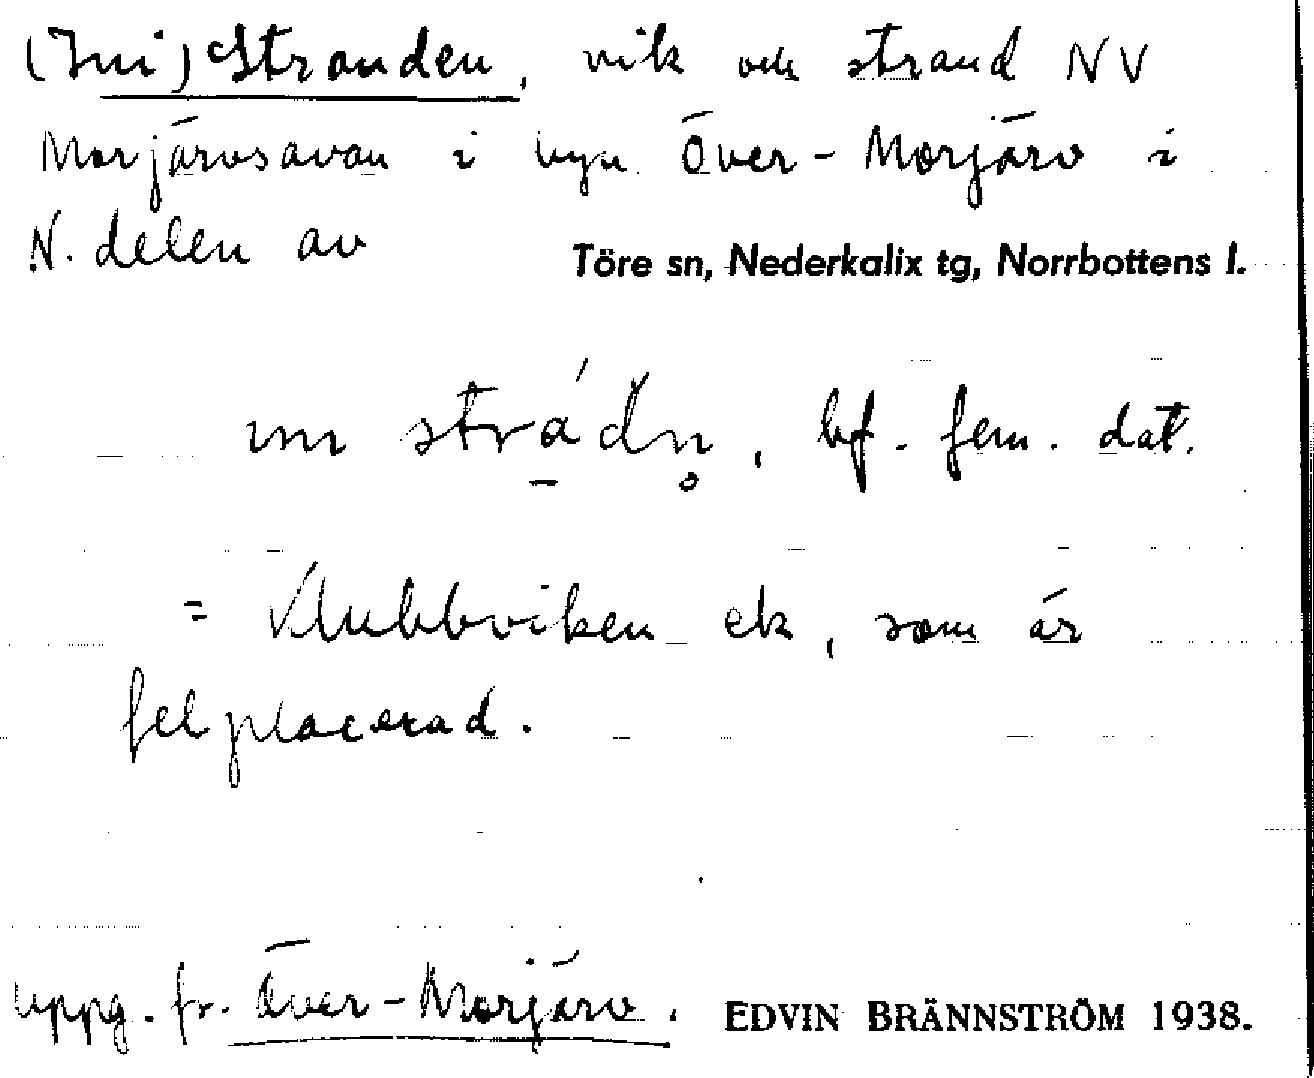 (Ini) Stranden, vik och strand NV
Morjärvsavan i byn Över-Morjärv i
N. delen av Töre sn, Nederkalix tg, Norrbottens l.
ini strạ́dn̥, bf. fem. dat.
= Klubbviken ek, som är
felplacerad.
uppg. fr. Över-Morjärv. EDVIN BRÄNNSTRÖM 1938.